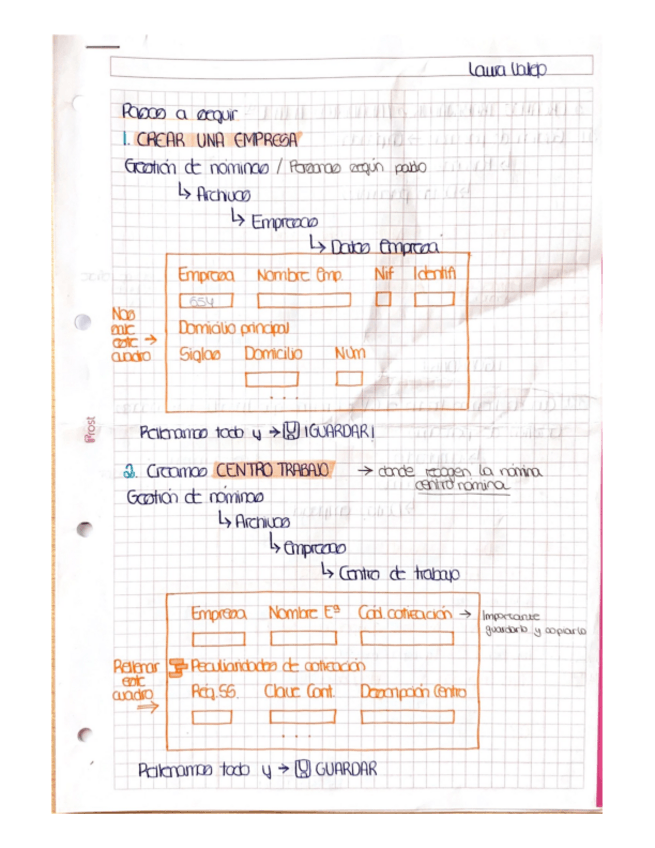 Laura Vallejo
Pasos a seguir
1. CREAR UNA EMPRESA
Gestión de nóminas / Paramos según pablo
↳ Archivos
↳ Empresas
↳ Datos Empresa
Empresa Nombre Emp. Nif Identifi
654
Nos
sale
este →
cuadro
Domicilio principal
Siglas Domicilio Núm
...
Rellenamos todo y → ¡GUARDAR!
Prost
2. Creamos CENTRO TRABAJO → donde recogen la nómina
centro nómina
Gestión de nóminas
↳ Archivos
↳ Empresas
↳ Centro de trabajo
Empresa Nombre Eª Cód. cotización → Importante
guardarlo y copiarlo
Rellenar
este
cuadro
⇒
Peculiaridades de cotización
Rég. SS. Clave Cont. Descripción Centro
...
Rellenamos todo y → GUARDAR